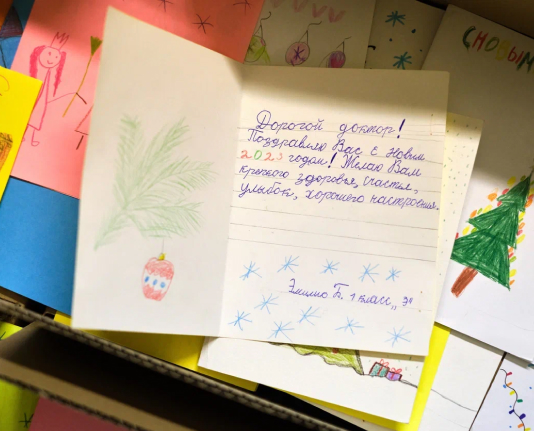 С НОВЫМ
Дорогой доктор!
Поздравляю Вас с Новым
2023 годом! Желаю Вам
крепкого здоровья, счастья,
улыбок, хорошего настроения.
Эмилио Б. 1 класс „Э"